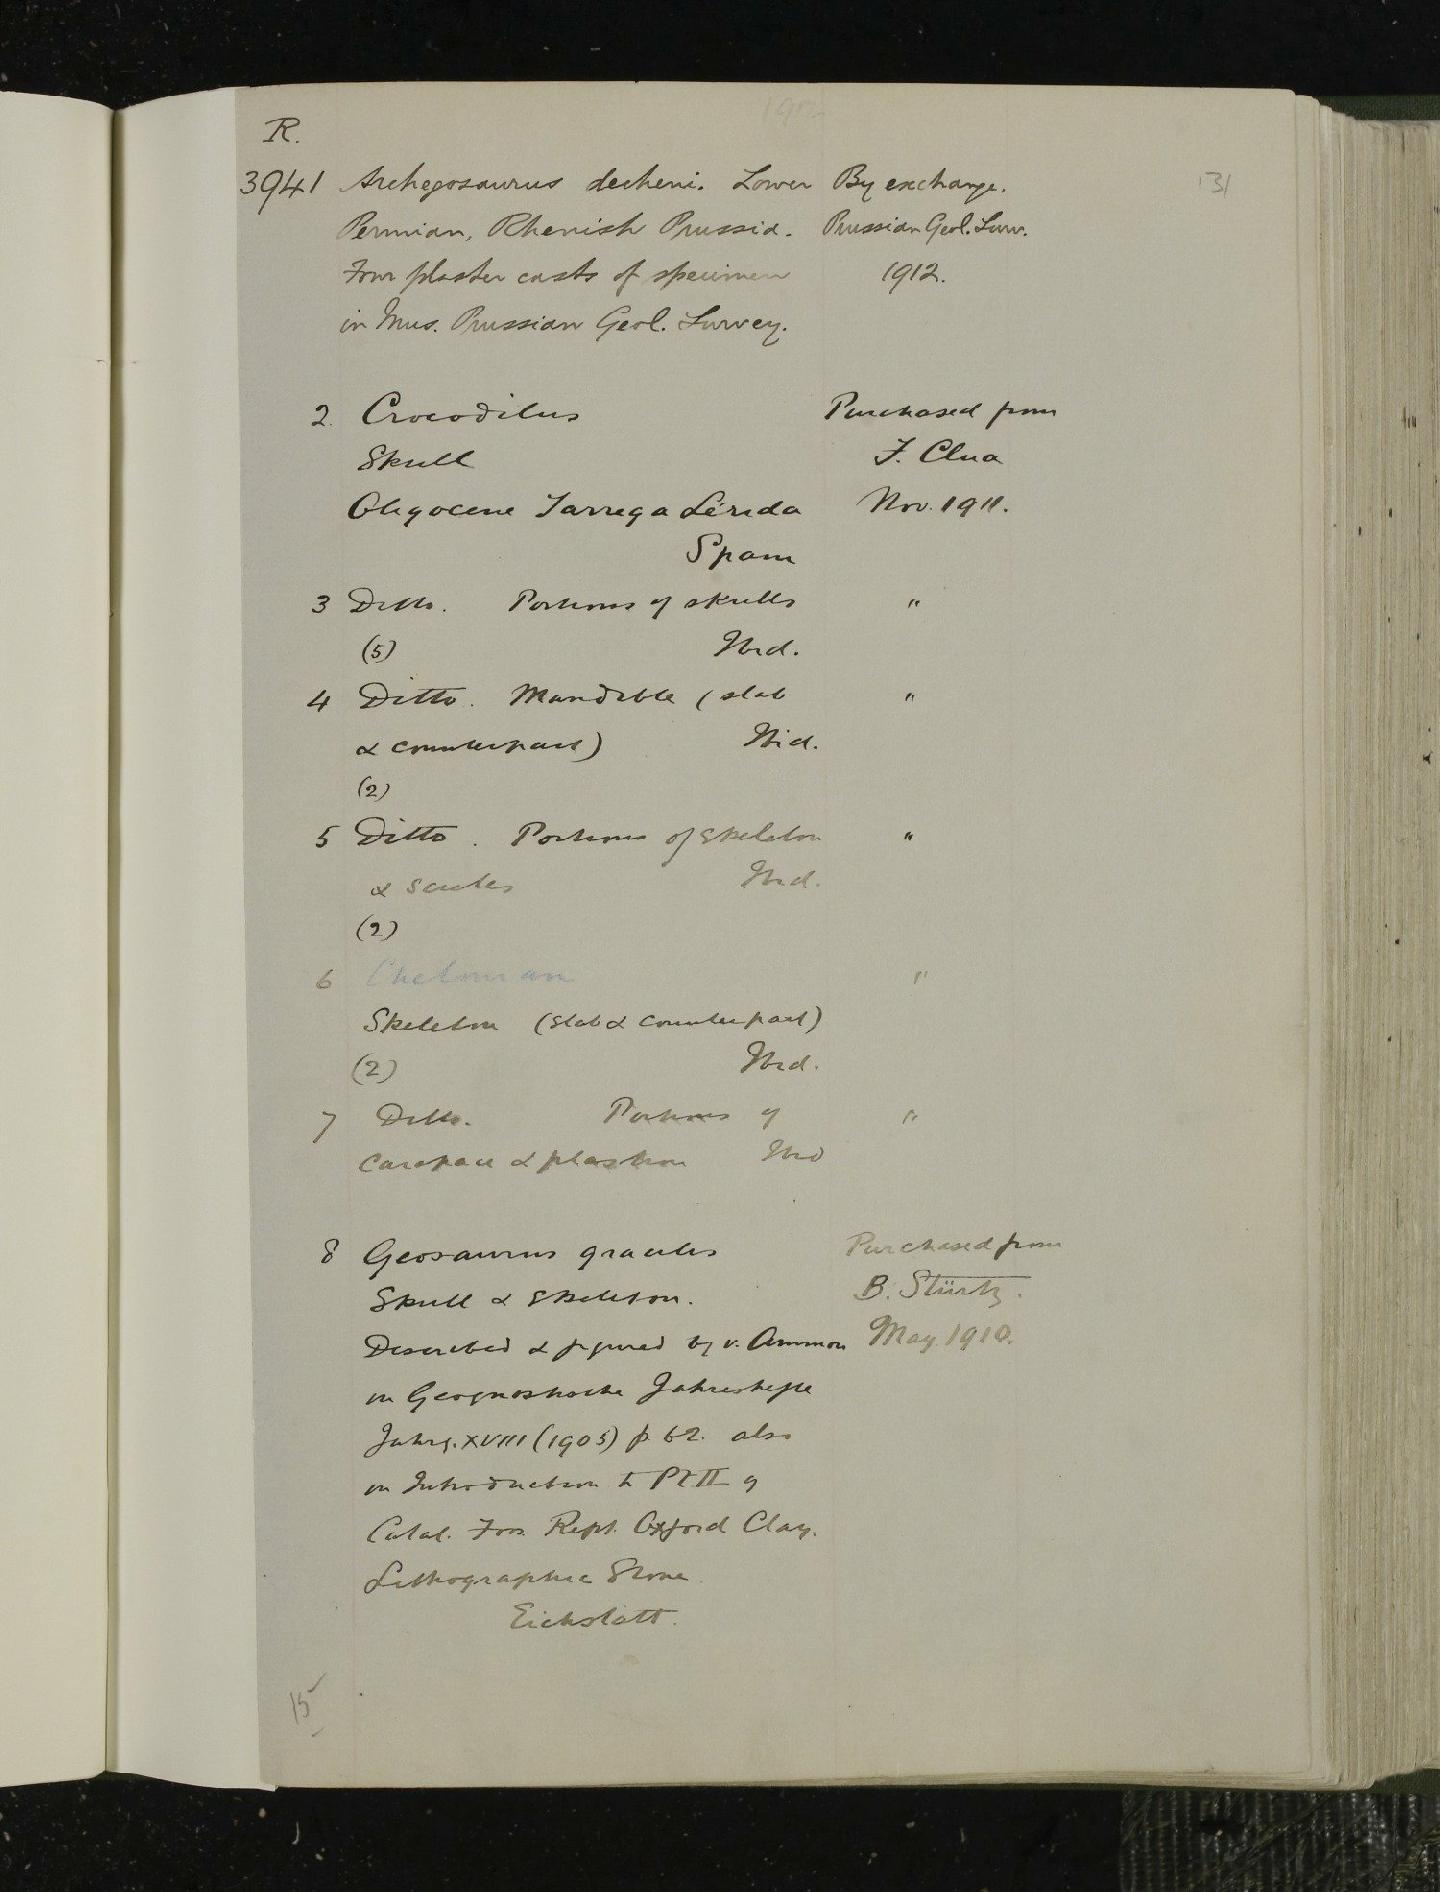 R.
131
3941 Archegosaurus decheni. Lower By exchange.
Permian, Rhenish Prussia. Prussian Geol. Surv.
Four plaster casts of specimen 1912.
in Mus. Prussian Geol. Survey.
2. Crocodilus Purchased from
Skull F. Clua
Oligocene Tarrega Lérida Nov. 1911.
Spain
3 Ditto. Portions of skulls "
(5) Ibid.
4 Ditto. Mandible (slab "
& counterpart) Ibid.
(2)
5 Ditto. Portions of skeleton "
& scutes Ibid.
(2)
6 Chelonian "
Skeleton (slab & counterpart)
(2) Ibid.
7 Ditto. Portions of "
carapace & plastron Ibid
8 Geosaurus gracilis Purchased from
Skull & skeleton. B. Stürtz.
Described & figured by v. Ammon May 1910.
in Geognostische Jahreshefte
Jahrg. XVIII (1905) p. 62. also
in Introduction to Pt II of
Catal. Foss. Rept. Oxford Clay.
Lithographic Stone
Eichstatt.
15